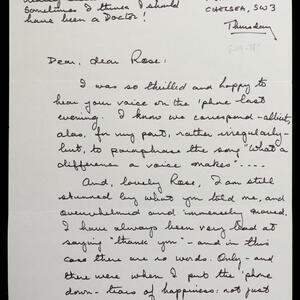 Sometimes I think I should
have been a Doctor!
CHELSEA, SW3
Thursday
Dear, dear Rose:
I was so thrilled and happy to
hear your voice on the 'phone last
evening. I know we correspond - albeit,
alas, for my part, rather irregularly -
but, to paraphrase the song "What a
difference a voice makes" ....
And, lovely Rose, I am still
stunned by what you told me, and
overwhelmed and immensely moved.
I have always been very bad at
saying "thank you" - and in this
case there are no words. Only - and
there were when I put the 'phone
down - tears of happiness: not just